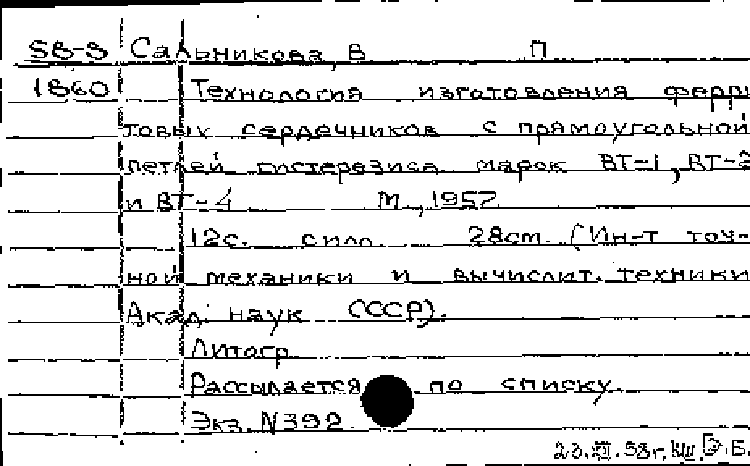 SB-8 Сальникова, В П
1860 Технология изготовления ферри
товых сердечников с прямоугольной
петлей гистерезиса марок ВТ-1, ВТ-2
и ВТ-4 М., 1957
12с. с илл. 28cm. (Ин-т точ-
ной механики и вычислит. техники
Акад. наук СССР).
Литогр.
Рассылается по списку.
Экз. N392
23.XII.58г.